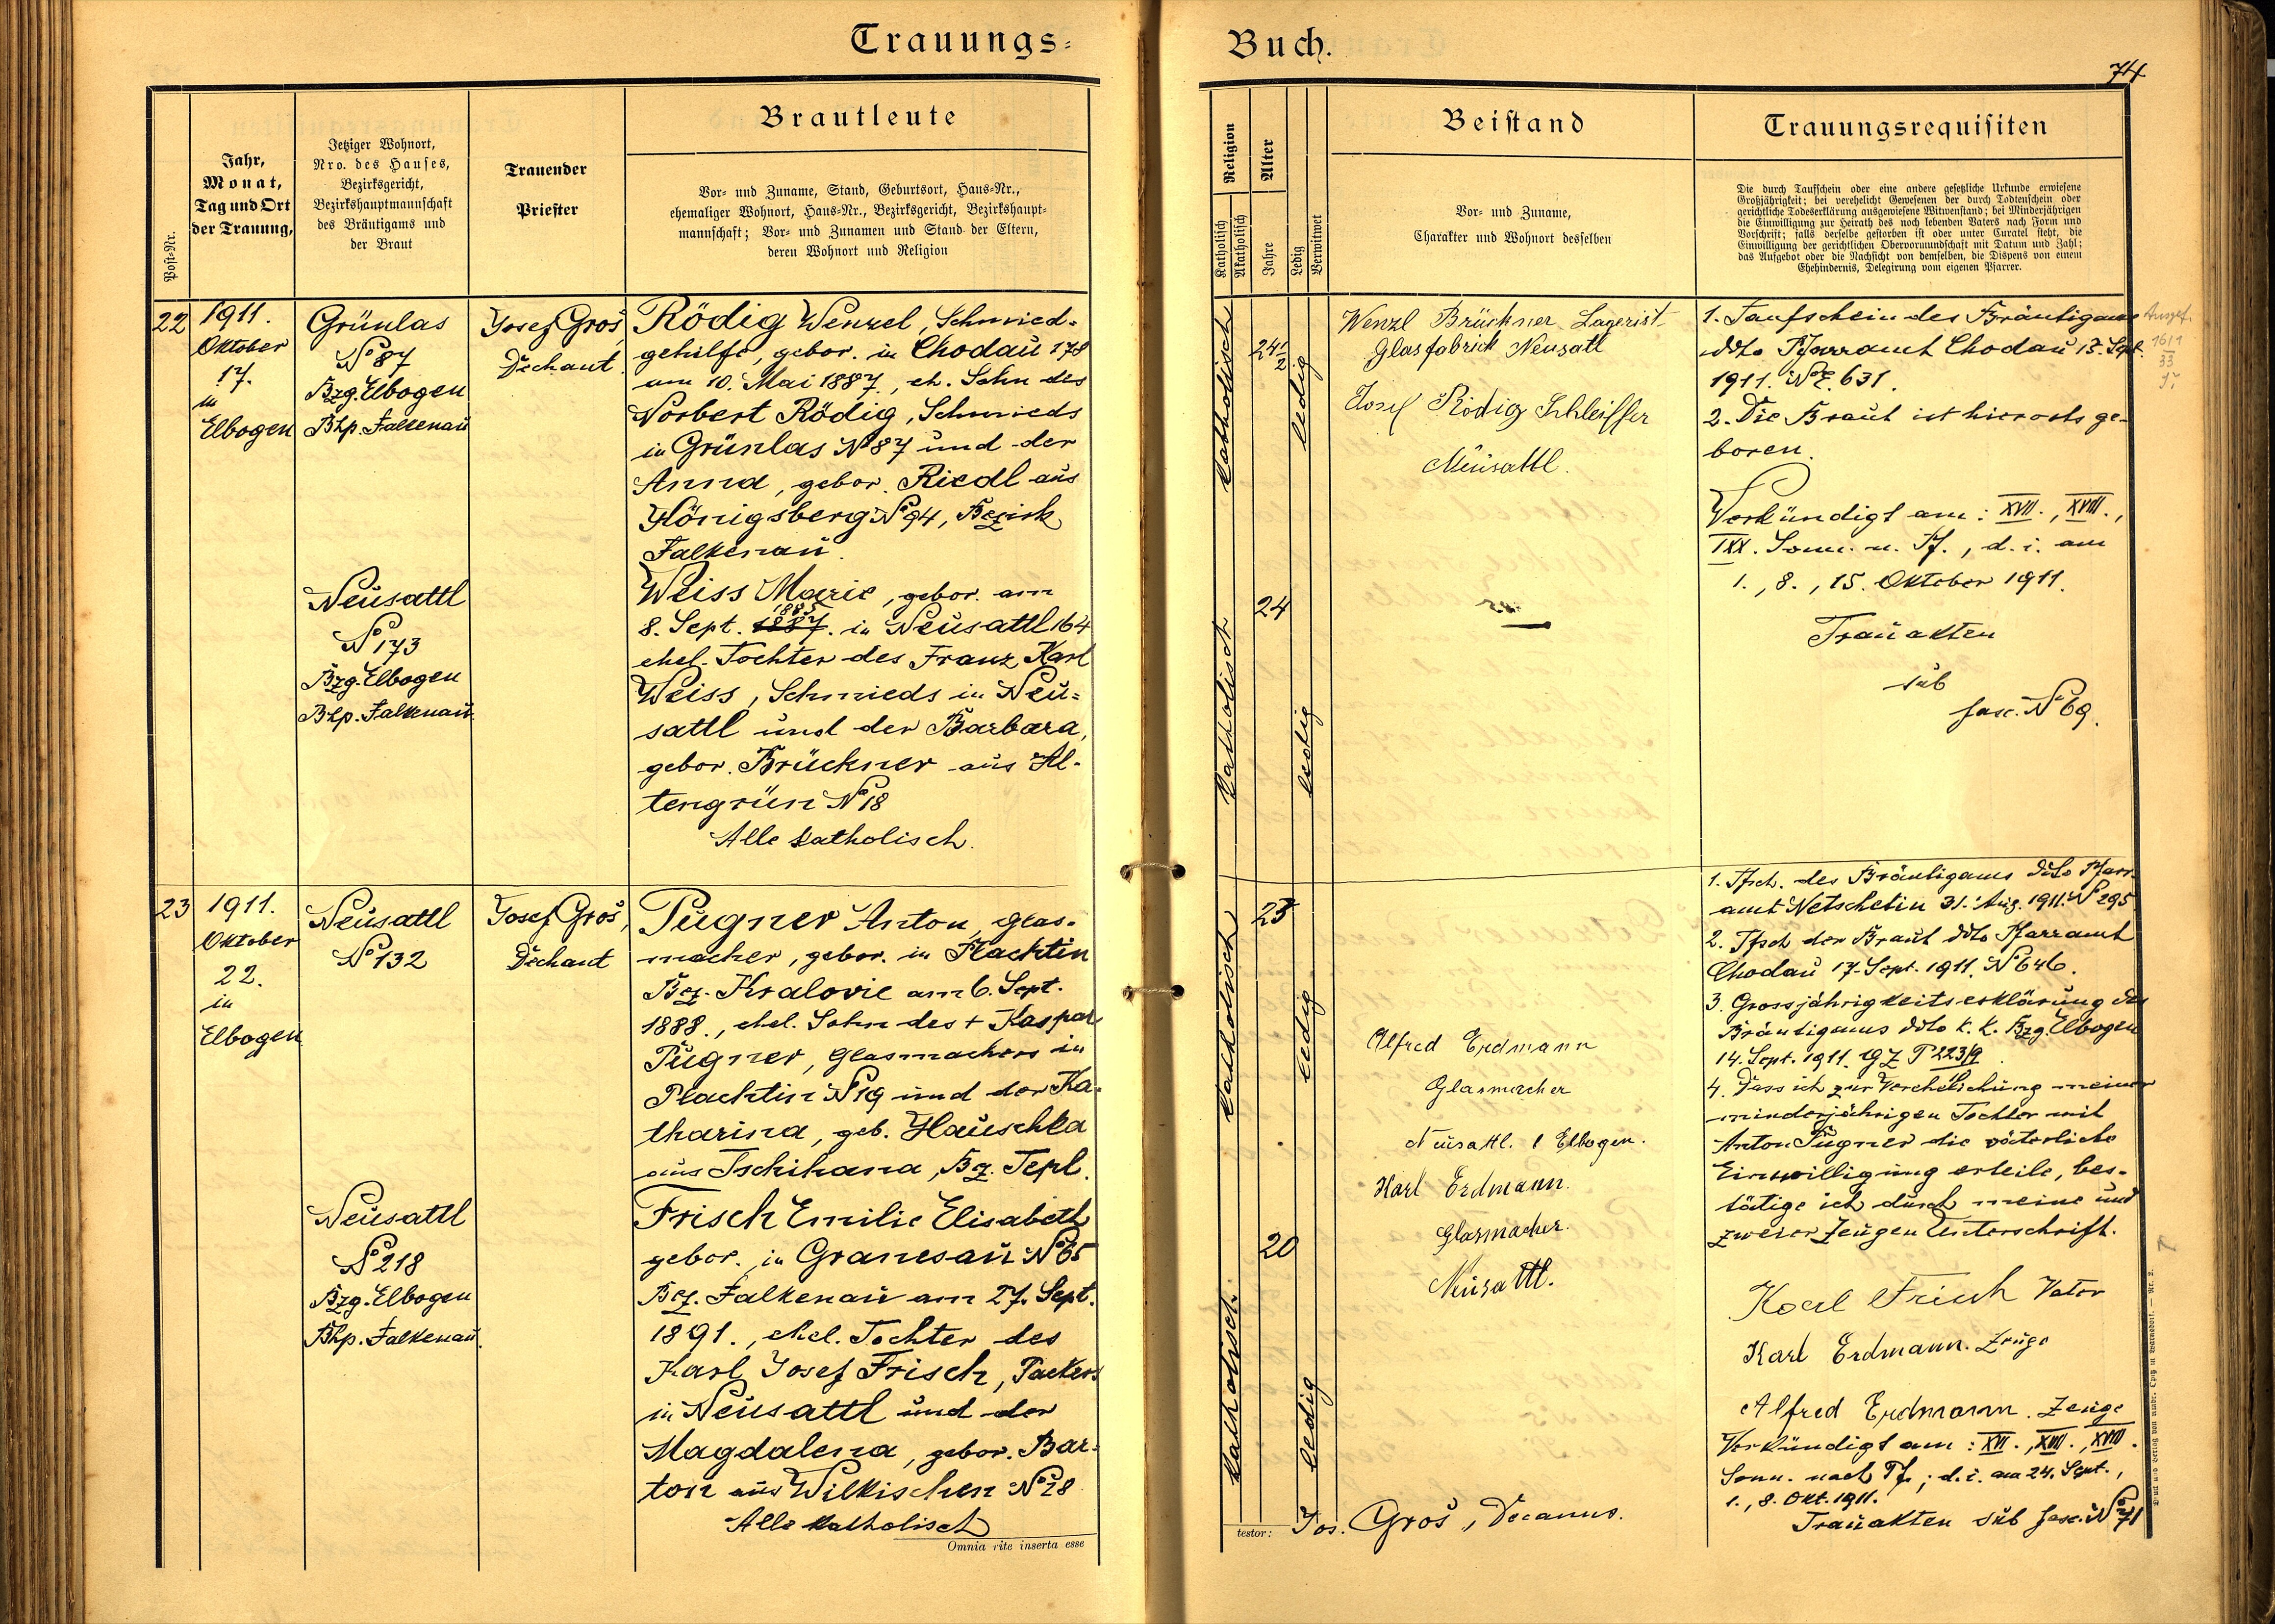 Trauungs-
Buch.
74
Post-Nr.
Jahr,
Monat,
Tag und Ort
der Trauung,
Jetziger Wohnort,
Nro. des Hauses,
Bezirksgericht,
Bezirkshauptmannschaft
des Bräutigams und
der Braut
Trauender
Priester
Brautleute
Vor- und Zuname, Stand, Geburtsort, Haus-Nr.,
ehemaliger Wohnort, Haus-Nr., Bezirksgericht, Bezirkshaupt-
mannschaft; Vor- und Zunamen und Stand der Eltern,
deren Wohnort und Religion
Religion
Katholisch
Akatholisch
Alter
Jahre
Ledig
Verwitwet
Beistand
Vor- und Zuname,
Charakter und Wohnort desselben
Trauungsrequisiten
Die durch Taufschein oder eine andere gesetzliche Urkunde erwiesene
Großjährigkeit; bei verehelicht Gewesenen der durch Todtenschein oder
gerichtliche Todeserklärung ausgewiesene Witwenstand; bei Minderjährigen
die Einwilligung zur Heirath des noch lebenden Vaters nach Form und
Vorschrift; falls derselbe gestorben ist oder unter Curatel steht, die
Einwilligung der gerichtlichen Obervormundschaft mit Datum und Zahl;
das Aufgebot oder die Nachsicht von demselben, die Dispens von einem
Ehehindernis, Delegirung vom eigenen Pfarrer.
22
1911.
Oktober
17.
in
Elbogen
Grünlas
No 87
Bzg. Elbogen
Bhp. Falkenau
Josef Groš,
Dechant
Rödig Wenzel, Schmied-
gehilfe, gebor. in Chodau 178
am 10. Mai 1887, eh. Sohn des
Norbert Rödig, Schmieds
in Grünlas No 87 und der
Anna, gebor. Riedl aus
Königsberg No 94, Bezirk
Falkenau.
Neusattl
No 173
Bzg. Elbogen
Bhp. Falkenau
Weiss Marie, gebor. am
1887
8. Sept. in Neusattl 164
ehel. Tochter des Franz Karl
Weiss, Schmieds in Neu-
sattl und der Barbara,
gebor. Brückner aus Al-
tengrün No 18
Alle katholisch.
katholisch
24
ledig
Wenzl Brückner Lagerist
Glasfabrick Neusatl
Josef Rödig Schleiffer
Neusattl.
katholisch
24
ledig
1. Taufschein des Bräutigams
ddto Pfarramt Chodau 13. Sept.
1911. No E. 631.
2. Die Braut ist hierorts ge-
boren.
Verkündigt am: XVII., XVIII.,
IXX. Sonn. n. Pf., d. i. am
1., 8., 15. Oktober 1911.
Trauakten
sub
fasc. No 69.
1611
33
23
1911.
Oktober
22.
in
Elbogen
Neusattl
No 132
Josef Groš,
Dechant
Pügner Anton, Glas-
macher, gebor. in Plachtin
Bez. Kralovic am 6. Sept.
1888., ehel. Sohn des + Kaspar
Pügner, Glasmachers in
Plachtin No 19 und der Ka-
tharina, geb. Hauschka
aus Tschihana, Bz. Tepl.
Neusattl
No 218
Bzg. Elbogen
Bhp. Falkenau.
Frisch Emilie Elisabeth
gebor. in Granesau No 65
Bez. Falkenau am 27. Sept.
1891., ehel. Tochter des
Karl Josef Frisch, Packers
in Neusattl und der
Magdalena, gebor. Bar-
ton aus Wilkischen No 28
Alle katholisch
Omnia rite inserta esse
katholisch
23
ledig
Alfred Erdmann
Glasmacher
Neusattl. b Elbogen.
Karl Erdmann.
Glasmacher.
Neusattl.
katholisch.
20
ledig
testor: Jos. Groš, Decanus.
1. Tfsch. des Bräutigams ddto Pfarr-
amt Netschetin 31. Aug. 1911. No 295
2. Tfsch der Braut ddto Pfarramt
Chodau 17. Sept. 1911. No 646.
3. Grossjährigkeitserklärung des
Bräutigams ddto k. k. Bzg. Elbogen
14. Sept. 1911. GZ P 223/9.
4. Dass ich zur Verehelichung meiner
minderjährigen Tochter mit
Anton Pügner die väterliche
Einwilligung erteile, bes-
tätige ich durch meine und
zweier Zeugen Unterschrift.
Karl Frisch Vater
Karl Erdmann. Zeuge
Alfred Erdmann. Zeuge
Verkündigt am: XVI., XVII., XVIII.
Sonn. nach Pf.; d. i. am 24. Sept.,
1., 8. Okt. 1911.
Trauakten sub fasc. No 71